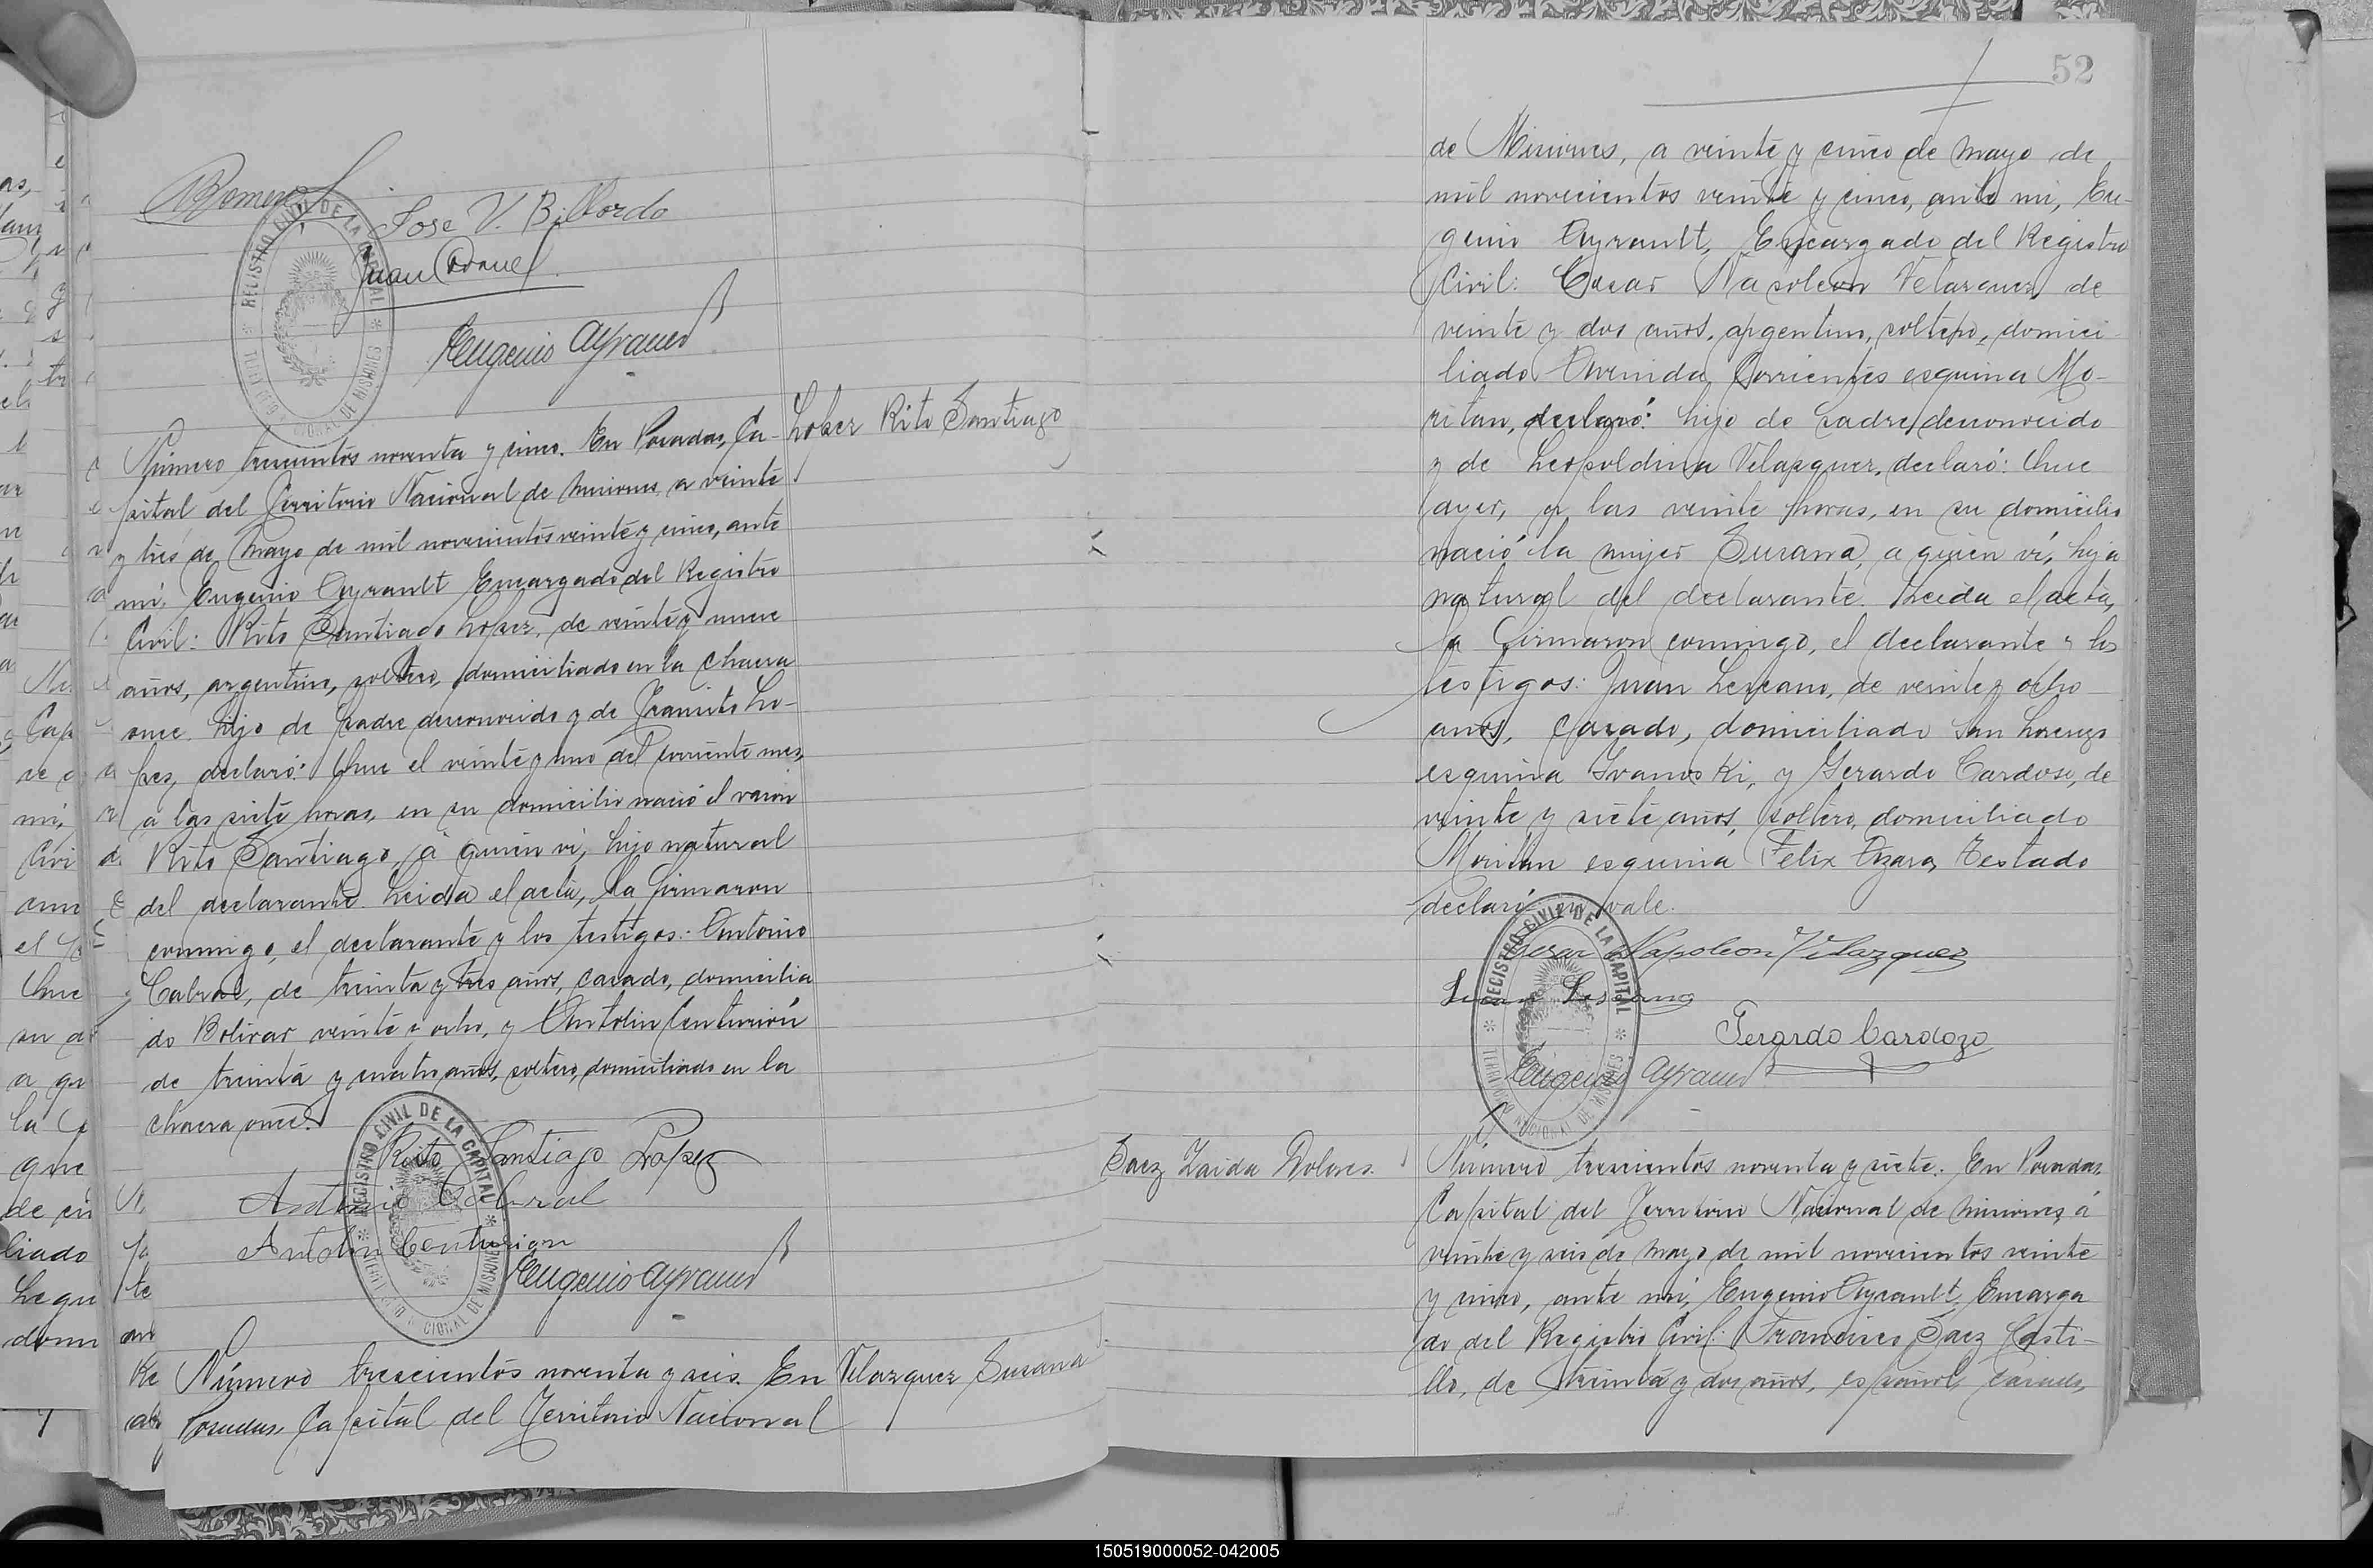 Romero
José V. Bilbordo
Juan
Eugenio Ayrault
REGISTRO CIVIL DE LA CAPITAL
TERRITORIO NACIONAL DE MISIONES
Lopez Rito Santiago
Número trescientos noventa y cinco. En Posadas, Ca-
pital del Territorio Nacional de Misiones, a veinte
y tres de Mayo de mil novecientos veinte y cinco, ante
mí, Eugenio Ayrault Encargado del Registro
Civil: Rito Santiago Lopez, de veinte y nueve
años, argentino, soltero, domiciliado en la chacra
once hijo de padre desconocido y de Transito Lo-
pez, declaró: Que el veinte y uno del corriente mes,
a las siete horas, en su domicilio nació el varon
Rito Santiago, á quien ví, hijo natural
del declarante. Leida el acta, la firmaron
conmigo, el declarante y los testigos: Antonio
Cabral, de treinta y tres años, casado, domicilia
do Bolivar veinte y ocho, y Antolin Centurión
de treinta y cuatro años, soltero, domiciliado en la
chacra once.
Rito Santiago Lopez
Antonio Cabral
Antolin Centurion
Eugenio Ayrault
REGISTRO CIVIL DE LA CAPITAL
TERRITORIO NACIONAL DE MISIONES
Velazquez Susana
Número trescientos noventa y seis. En
Posadas, Capital del Territorio Nacional
52
de Misiones, a veinte y cinco de Mayo de
mil novecientos veinte y cinco, ante mi, Eu-
genio Ayrault, Encargado del Registro
Civil: Cesar Napoleon Velazquez de
veinte y dos años, argentino, soltero, domici-
liado Avenida Corrientes esquina Mo-
ritan, declaró: hijo de padre desconocido
y de Leopoldina Velazquez, declaró: Que
ayer, a las veinte horas, en su domicilio
nació la mujer Susana, a quien ví, hija
natural del declarante. Leida el acta,
la firmaron conmigo, el declarante y los
testigos: Juan Lescano, de veinte y ocho
años, casado, domiciliado San Lorenzo
esquina Ivanoski, y Gerardo Cardoso, de
veinte y siete años, soltero, domiciliado
Moritan esquina Felix Azara, Testado
declaró no vale.
Cesar Napoleon Velazquez
Juan Lescano
Gerardo Cardozo
Eugenio Ayrault
REGISTRO CIVIL DE LA CAPITAL
TERRITORIO NACIONAL DE MISIONES
Saez Zaida Dolores.
Número trescientos noventa y siete. En Posadas,
Capital del Territorio Nacional de Misiones, á
veinte y seis de Mayo de mil novecientos veinte
y cinco, ante mí, Eugenio Ayrault, Encarga
do del Registro Civil: Francisco Saez Casti-
llo, de treinta y dos años, español, casado,
150519000052-042005